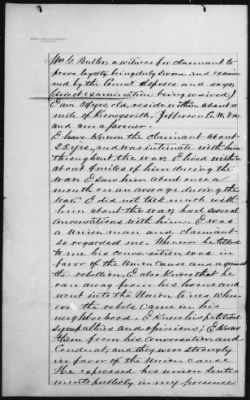 Wm G. Butler, a witness for claimant to
prove loyalty being duly sworn and exami-
ned by the Court deposes and says,
(direct examination being waived)
I am years old, reside within about a
mile of Kearneysville, Jefferson Co. W. Va.
and am a farmer.
I have known the claimant about
25 yrs, and was intimate with him
throughout the war. I lived within
about 4 miles of him during the
war. I saw him about once a
month on an average during the
war. I did not talk much with
him about the war, had several
conversations with him. I was
a Union man and claimant
so regarded me. Whenever he talked
to me his conversation was in
favor of the Union cause and against
the rebellion. I also know that he
ran away from his home and
went into the Union lines when-
ever the rebels came in his
neighborhood. I knew his political
sympathies and opinions; I knew
them from his conversation and
conduct, and they were strongly
in favor of the Union cause.
He expressed his union senti-
ments publicly in my presence